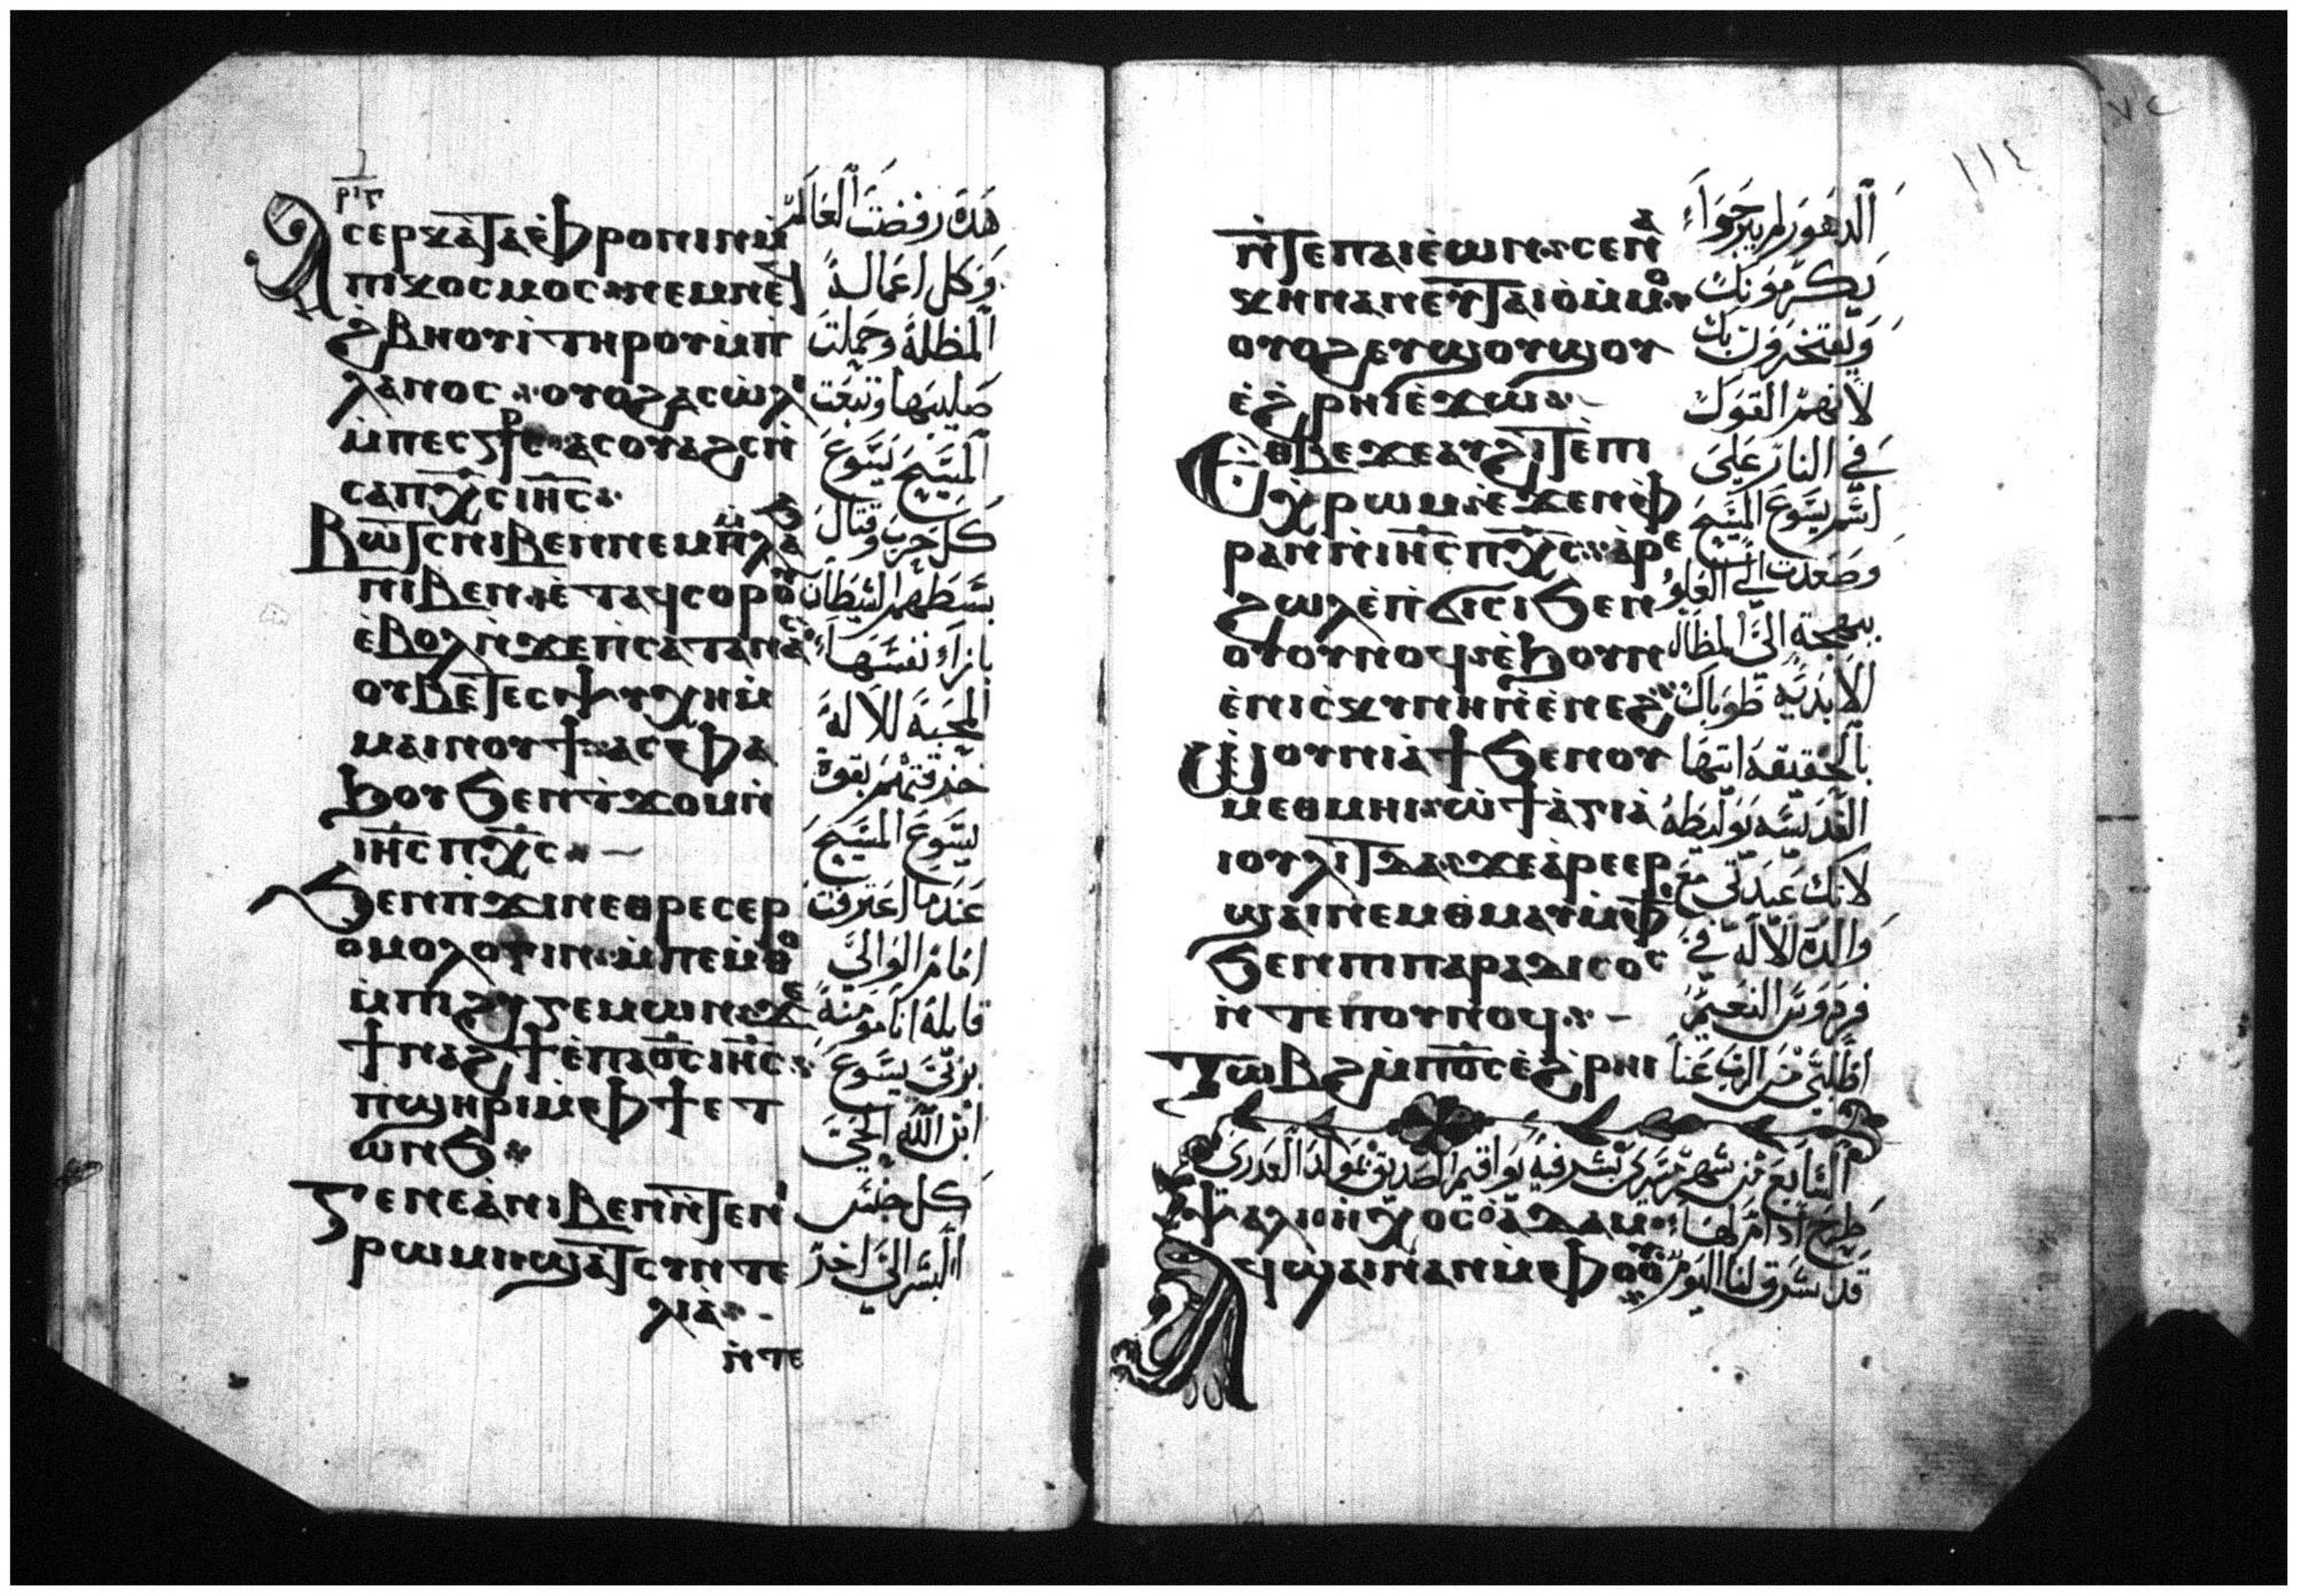 ⲣⲓⲅ
Ⲁⲥⲉⲣⲕⲁ̀ⲧⲁⲉ̀ⲫⲣⲟⲛⲓⲛⲙ̀
ⲡⲓⲕⲟⲥⲙⲟⲥ ⲛⲉⲙⲛⲉϥ
ϩ̀ⲃⲏⲟⲩⲓ̀ ⲧⲏⲣⲟⲩ ⲙ̀ⲡ
ⲗⲁⲛⲟⲥ ⲟⲩⲟϩ ⲁⲥⲱ̀ⲗⲓ
ⲙ̀ⲡⲉⲥ ⲁⲥⲟⲩⲁϩⲥⲛ̀
ⲥⲁⲡⲭ̅ⲥ̅ ⲓⲏ̅ⲥ̅
Ⲃⲱⲧⲥ ⲛⲓⲃⲉⲛ ⲛⲉⲙ
ⲛⲓⲃⲉⲛ ⲉ̀ⲧⲁϥⲥⲟⲣⲟⲩ
ⲉ̀ⲃⲟⲗ ⲛ̀ϫⲉⲡⲥⲁⲧⲁⲛⲁⲥ
ⲟⲩⲃⲉ ⲧⲉⲥⲯⲩⲭⲏ ⲙ̀
ⲙⲁⲓⲛⲟⲩϯ ⲁⲥⲫⲁ
ϧⲟⲩ ϧⲉⲛⲧϫⲟⲙ ⲛ̀
ⲓⲏ̅ⲥ̅ ⲡⲭ̅ⲥ̅
Ϧⲉⲛⲡϫⲓⲛⲉⲑⲣⲉⲥⲉⲣ
ⲟⲙⲟⲗⲟⲅⲓⲛ ⲙ̀ⲡⲉⲙ̀ⲑⲟ
ⲙ̀ⲡⲓϩⲩⲅⲉⲙⲱⲛ ϫⲉ
ϯⲛⲁϩϯ ⲉ̀ⲡⲁⲟ̅ⲥ̅ ⲓⲏ̅ⲥ̅
ⲡϣⲏⲣⲓ ⲙ̀ⲫϯ ⲉⲧ
ⲱⲛϧ
Ⲅⲉⲛⲉⲁ̀ ⲛⲓⲃⲉⲛ ⲛ̀ⲧⲉⲛⲓ
ⲣⲱⲙⲓ ϣⲁ̀ⲧⲥⲩⲛⲧⲉ
ⲗⲓⲁ̀
ⲛ̀ⲧⲉ
هذه رفضت العالم
وكل اعماله
المظلة وحملت
صليبها وتبعت
المسيح يسوع
كل حرب وقتال
بسطهم الشيطان
بازاء نفسها
المحبة للاله
بقوة
يسوع المسيح
عندما اعترفت
امام الوالي
قايلة انا مومنة
بربي يسوع
ابن الله الحي
كل جنس
البشر الى اخر
١١٤
ⲛ̀ⲧⲉⲡⲁⲓⲉ̀ⲱⲛ ⲥⲉⲛⲁ
ⲕⲏⲛ ⲁⲛ ⲉⲩⲧⲁⲓⲟ̀ ⲙ̀ⲙⲟ
ⲟⲩⲟϩ ⲉⲩϣⲟⲩϣⲟⲩ
ⲉ̀ϩ̀ⲣⲏⲓ ⲉ̀ϫⲱ
Ⲉⲑⲃⲉ ϫⲉ ⲁⲩϩⲓϯ ⲉ̀ⲡⲓ
ⲭ̀ⲣⲱⲙ ⲉ̀ϫⲉⲛ ⲫ
ⲣⲁⲛ ⲛ̀ⲓⲏ̅ⲥ̅ ⲡⲭ̅ⲥ̅ ⲁ̀ⲣⲉ
ϩⲱⲗ ⲉ̀ⲡϭⲓⲥⲓ ϧⲉⲛ
ⲟⲩⲟⲩⲛⲟϥ ⲉ̀ϧⲟⲩⲛ
ⲉ̀ⲛⲓⲥⲕⲩⲛⲏ ⲛ̀ⲉ̀ⲛⲉϩ
Ⲱⲟⲩⲛⲓⲁ̀ϯ ϧⲉⲛⲟⲩ
ⲙⲉⲑⲙⲏⲓ ⲱ̀ ϯⲁ̀ⲅⲓⲁ̀
ⲓⲟⲩⲗⲓⲧⲧⲁ ϫⲉ ⲁ̀ⲣⲉⲉⲣ
ϣⲁⲓ ⲛⲉⲙ ⲑⲙⲁⲩ ⲙ̀ⲫϯ
ϧⲉⲛⲡⲓⲡⲁⲣⲁⲇⲓⲥⲟⲥ
ⲛ̀ⲧⲉⲡⲟⲩⲛⲟϥ
Ⲧⲱⲃϩ ⲙ̀ⲡⲟ̅ⲥ̅ ⲉ̀ϩ̀ⲣⲏⲓ
الدهور
يكرمونك
ويفتخرون بك
لانهم القوك
في النار على
اسم يسوع المسيح
وصعدت الى العلو
ببهجة الى المظال
الابدية طوباك
بالحقيقة ايتها
القديسة يوليطه
لانك عيدتي مع
والدة الاله في
فردوس النعيم
اطلبي من الرب عنا
السابع من شهر مسرى بشر فيه يواقيم الصديق بمولد العدرى
Ⲯⲁⲗⲓ ⲏⲭⲟⲥ ⲁⲇⲁⲙ طرح ادام لها
Ⲁϥϣⲁⲓ ⲛⲁⲛ ⲙ̀ⲫⲟⲟⲩ قد شرق لنا اليوم